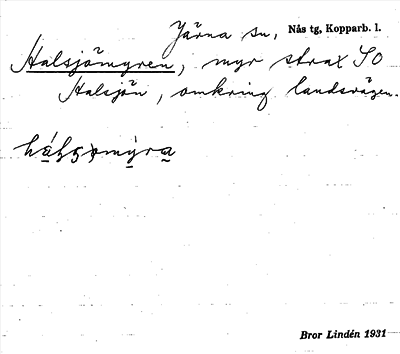 Järna sn, Nås tg, Kopparb. l.
Halsjömyren, myr strax SO
Halsjön, omkring landsvägen.
Bror Lindén 1931